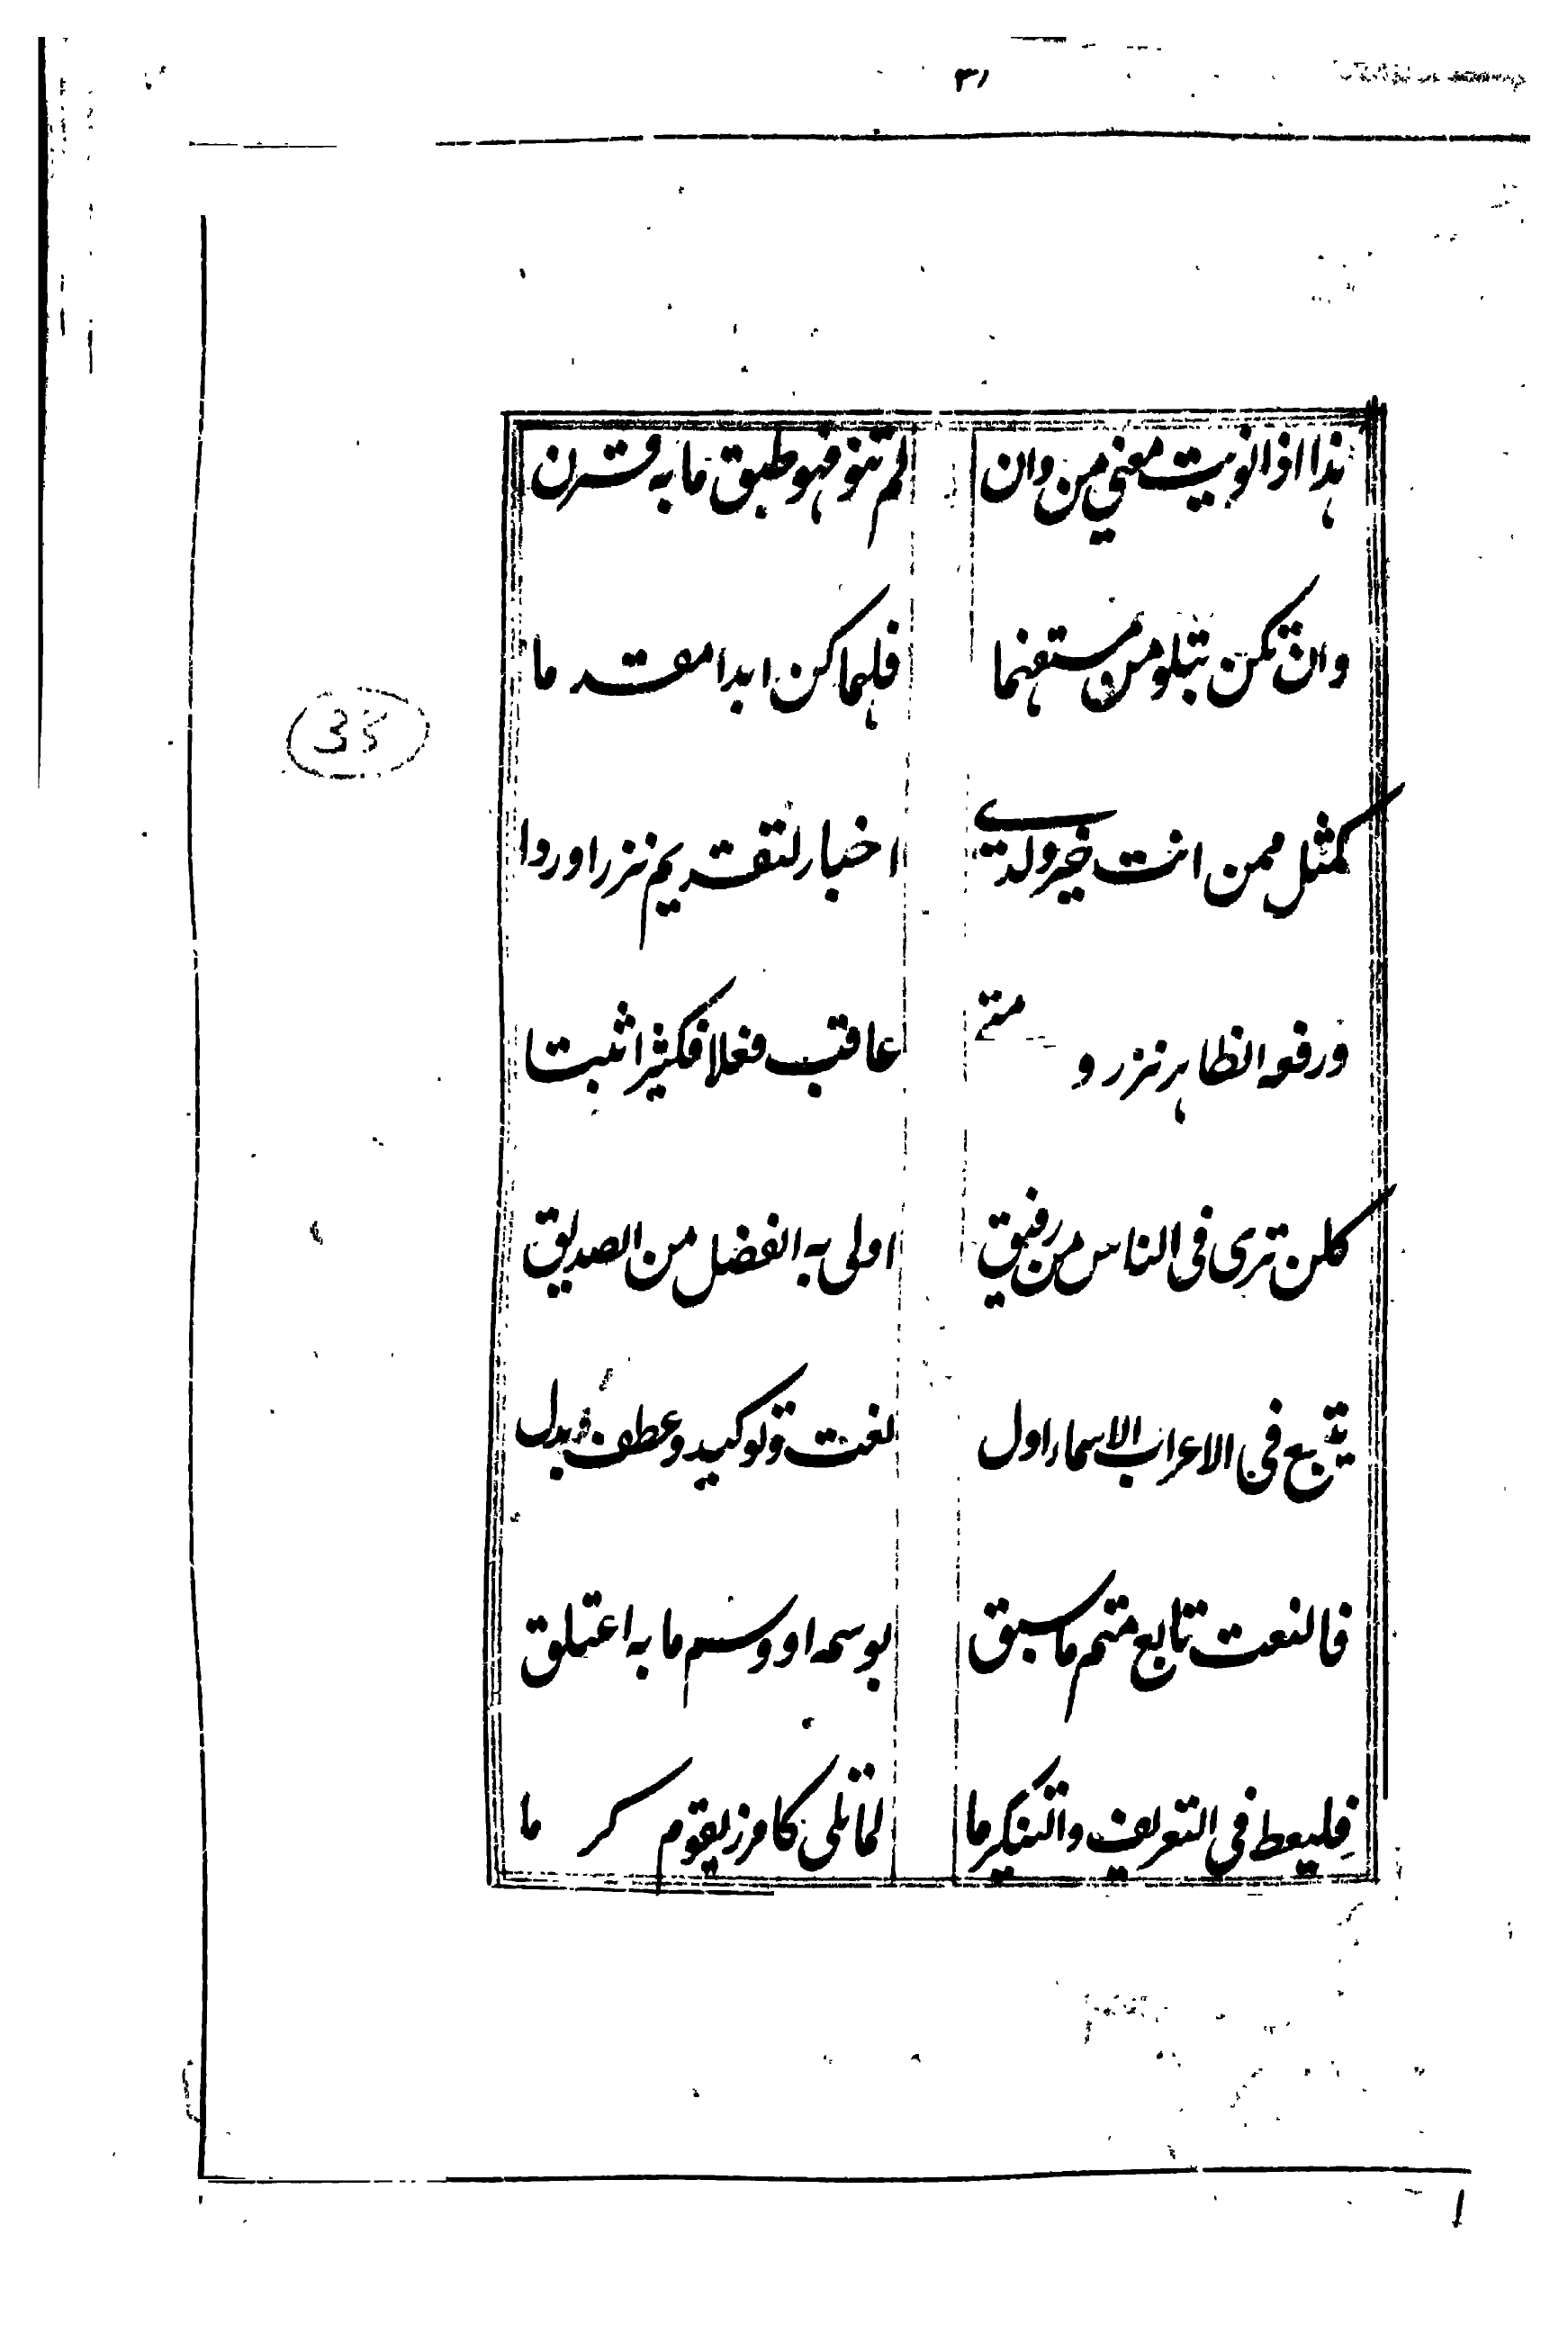 ٣١
هذا اذا نويت معنى من وان لم تنو فهو طبق ما به قرن
وان تكن بتلو من مستفهما فلهما كن ابدا مقدما
33
كمثل ممن انت خير ولدى اخبار لتقديم نزرا وردا
ورفعه الظاهر نزر و متى عاقب فعلا فكثيرا ثبتا
كلن ترى فى الناس من رفيق اولى به الفضل من الصديق
يتبع فى الاعراب الاسماء اول نعت وتوكيد وعطف وبدل
فالنعت تابع متم ما سبق بوسمه او وسم ما به اعتلق
فليعط فى التعريف والتنكير ما لما تلى كامرر بقوم كرما